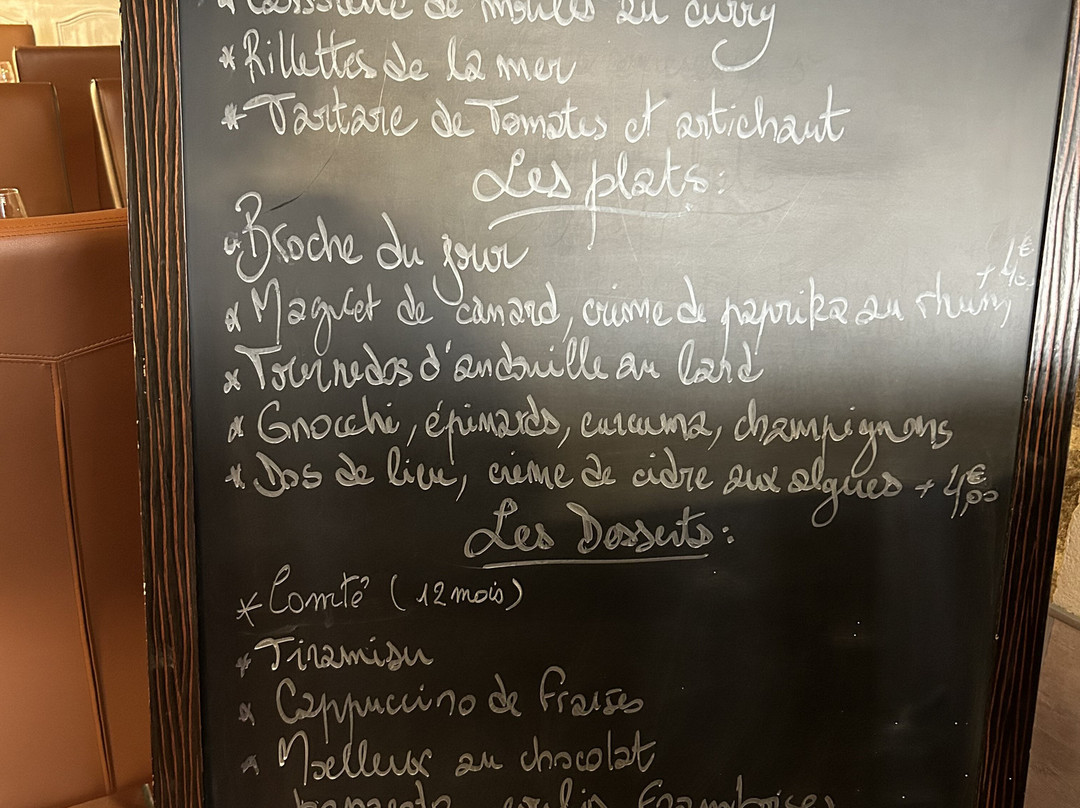 * Cassolette de moules au curry
* Rillettes de la mer
* Tartare de Tomates et artichaut
Les plats:
* Broche du jour
* Magret de canard, crème de paprika au rhum, + 4€00
* Tournedos d'andouille au lard
* Gnocchi, épinards, curcuma, champignons
* Dos de lieu, crème de cidre aux algues + 4,00€
Les Desserts:
* Comté (12 mois)
* Tiramisu
* Cappuccino de fraises
* Moelleux au chocolat
coulis framboises